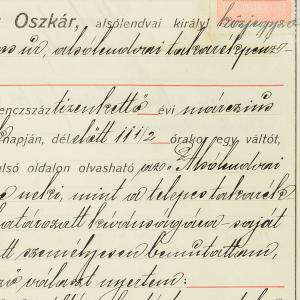 Oszkár, alsólendvai királyi közjegyző
os úr, alsólendvai takarékpénz-
enczszáz tizenkettő évi márczius
napján, dél előtt 11 1/2 órakor egy váltót,
ulsó oldalon olvasható az „Alsólendvai
neki, mint a telepes takarék
határozott kívánságára - saját
tt személyesen bemutattam,
ző választ nyertem: